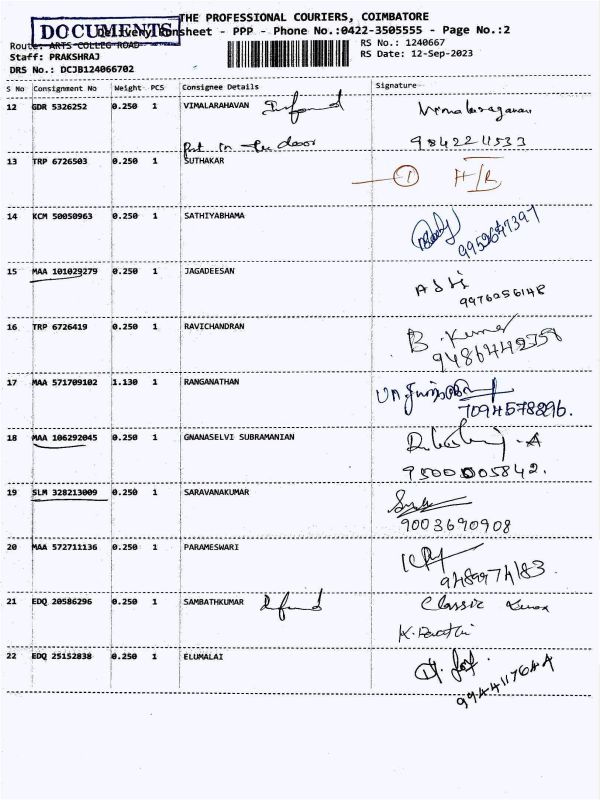 THE PROFESSIONAL COURIERS, COIMBATORE
DOCUMENTS
Delivery Runsheet - PPP - Phone No.:0422-3505555 - Page No.:2
Route: ARTS COLLEG ROAD
RS No.: 1240667
Staff: PRAKSHRAJ
RS Date: 12-Sep-2023
DRS No.: DCJB124066702
S No Consignment No Weight PCS Consignee Details Signature
12 GDR 5326252 0.250 1 VIMALARAHAVAN
Put in the door 9842211533
13 TRP 6726503 0.250 1 SUTHAKAR
1 H/R
14 KCM 50050963 0.250 1 SATHIYABHAMA
9952647397
15 MAA 101029279 0.250 1 JAGADEESAN
9976056148
16 TRP 6726419 0.250 1 RAVICHANDRAN B. Kumar
9486442758
17 MAA 571709102 1.130 1 RANGANATHAN
7094578896.
18 MAA 106292045 0.250 1 GNANASELVI SUBRAMANIAN
9500005842.
19 SLM 328213009 0.250 1 SARAVANAKUMAR
9003690908
20 MAA 572711136 0.250 1 PARAMESWARI
9489974183.
21 EDQ 20586296 0.250 1 SAMBATHKUMAR Classic Xerox
22 EDQ 25152838 0.250 1 ELUMALAI
9944117644